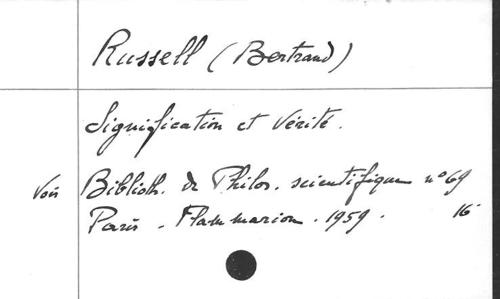 Russell (Bertrand)
Signification et Vérité.
Voir Biblioth. de Philos. scientifique n° 69
Paris. Flammarion. 1959. 16°